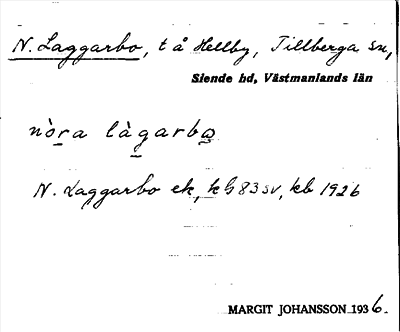 N. Laggarbo, t å Hellby, Tillberga sn,
Siende hd, Västmanlands län
nòra làgarbo
N. Laggarbo ek, kb 83 sv, kb 1926
MARGIT JOHANSSON 1936.